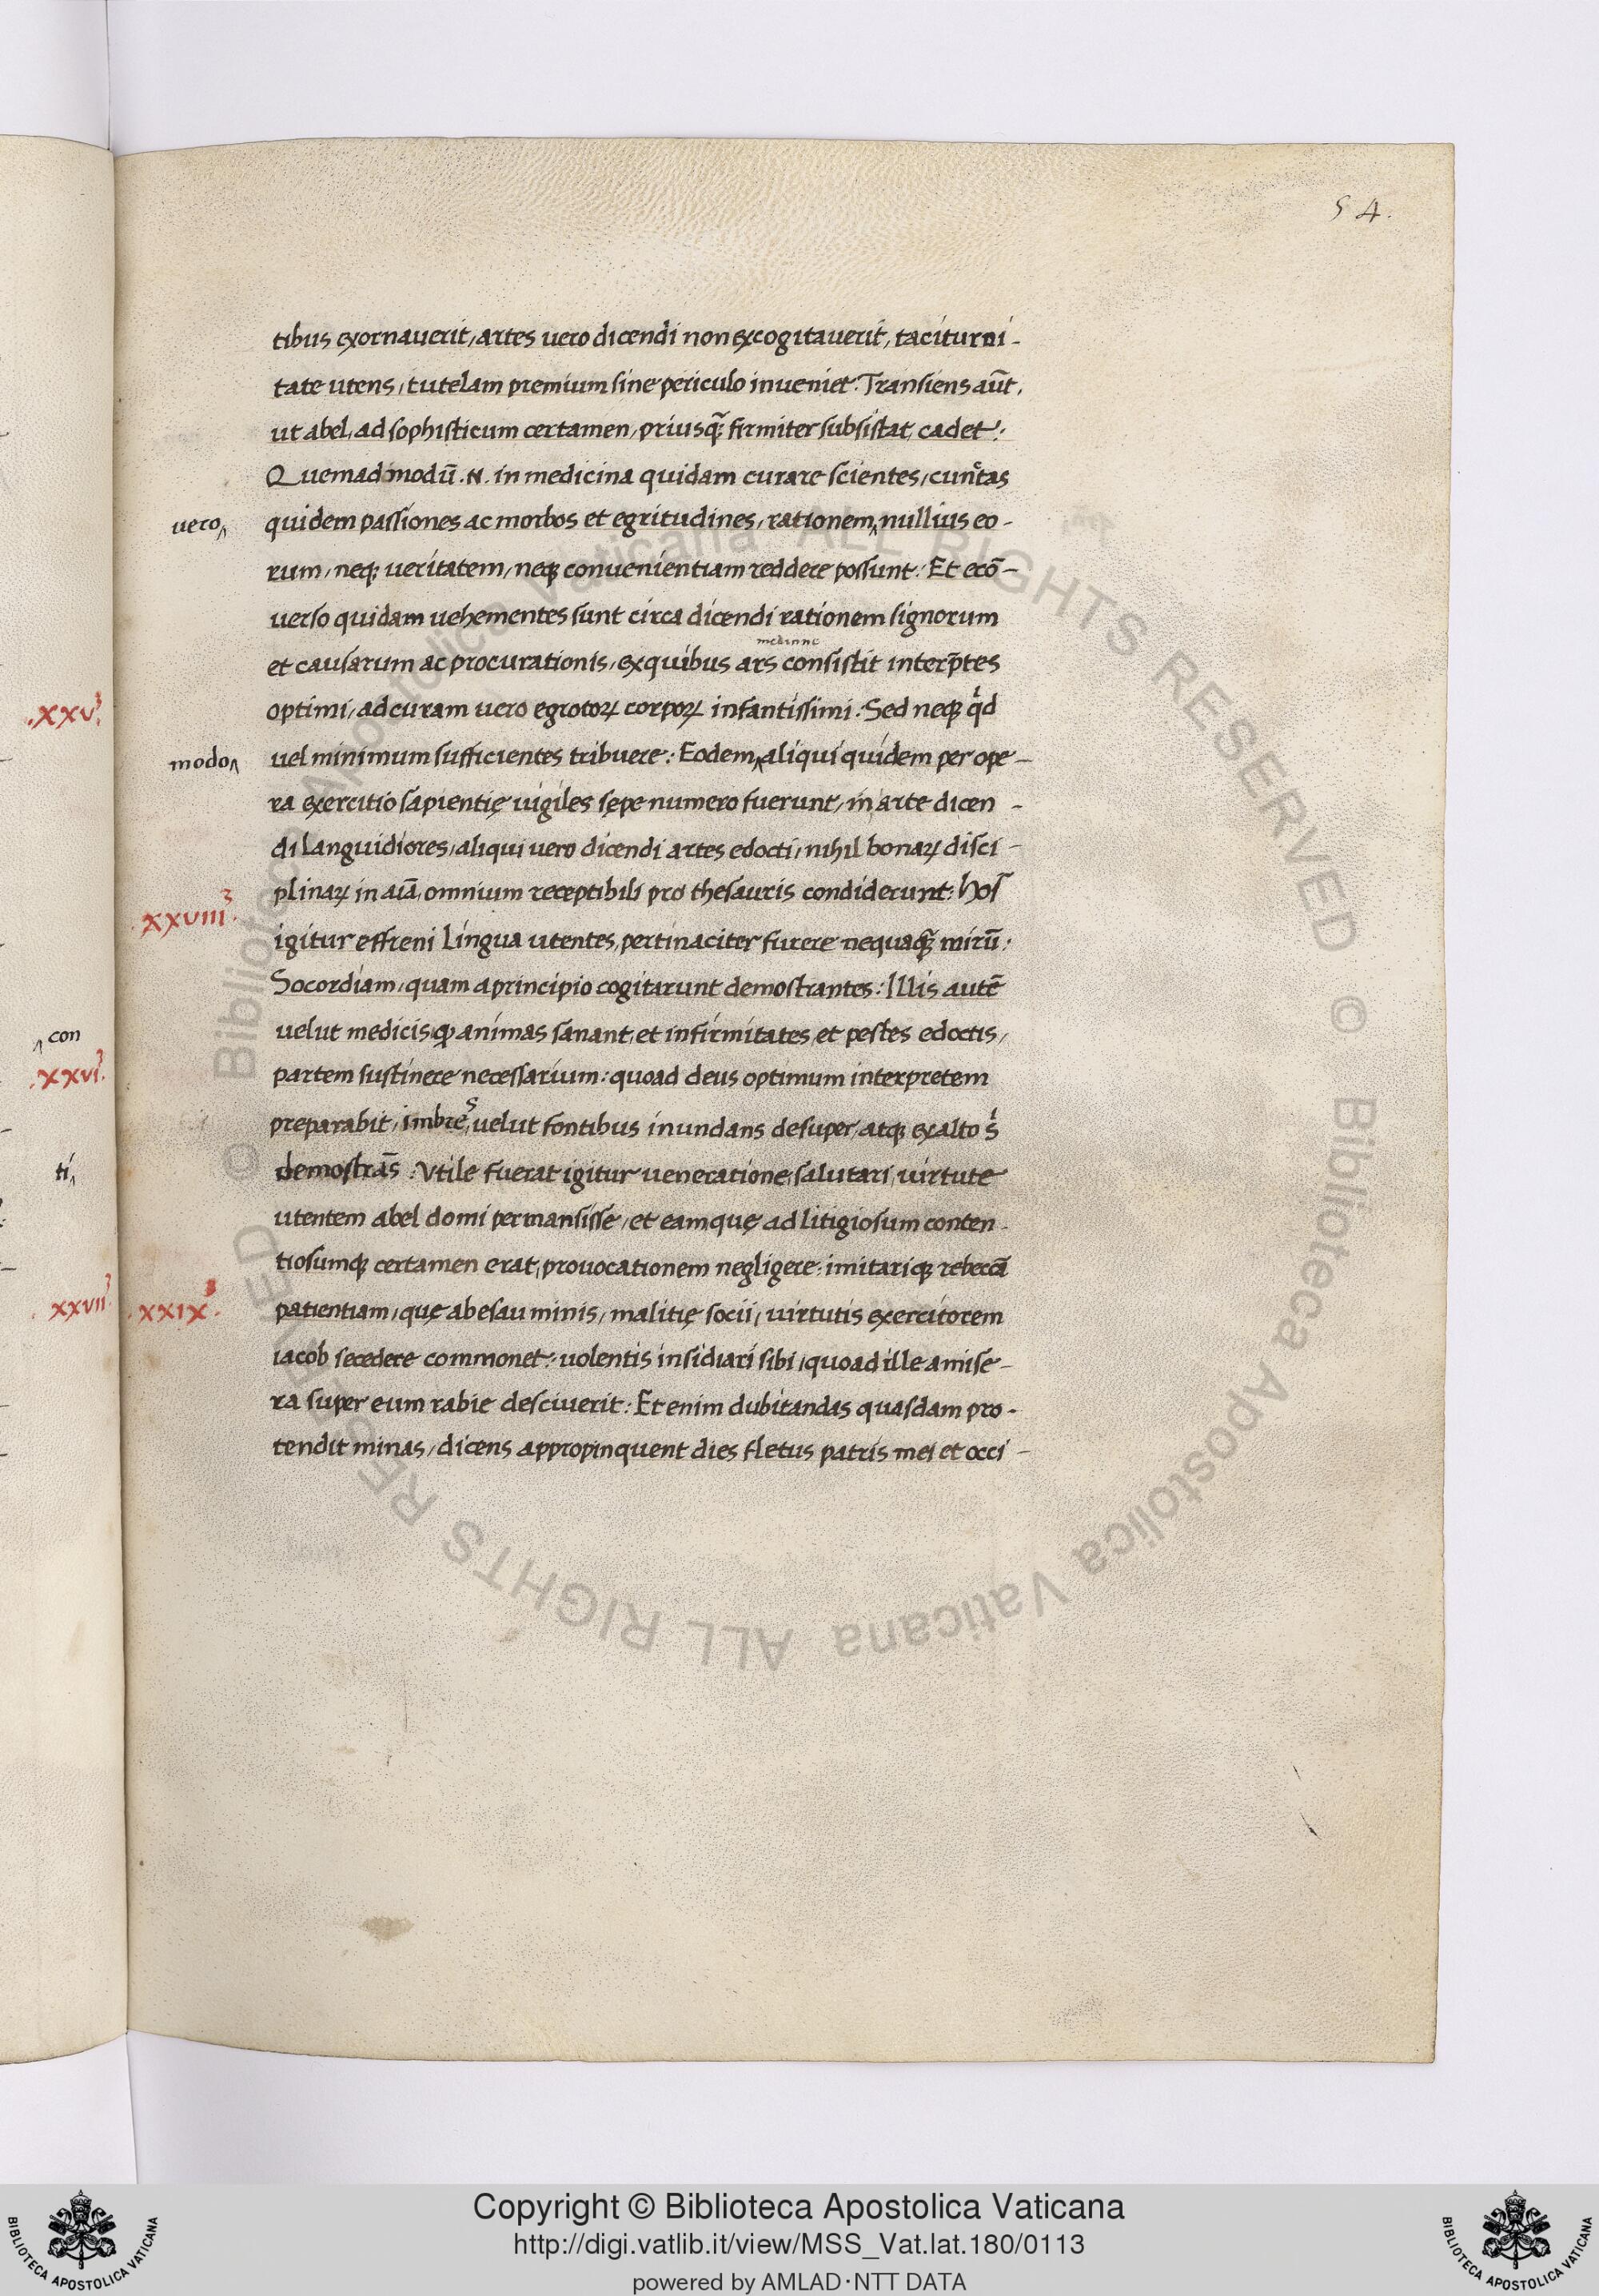 54.
tibus exornauerit, artes uero dicendi non excogitauerit, taciturni-
tate utens, tutelam premium sine periculo inueniet. Transiens aūt,
ut abel, ad sophisticum certamen, priusq̃; firmiter subsistat, cadet:
Quemadmodū .N. in medicina quidam curare scientes, cunctas
vero quidem passiones ac morbos et egritudines, rationem nullius eo-
rum, neq; ueritatem, neq; conuenientiam reddere possunt: Et ecō-
uerso quidam uehementes sunt circa dicendi rationem signorum
medicine
et causarum ac procurationis, ex quibus ars consistit interp̄tes
.XXV.
optimi, ad curam uero egrotoꝝ corpoꝝ infantissimi. Sed neq; qd
modo uel minimum sufficientes tribuere: Eodem aliqui quidem per ope-
ra exercitio sapientię uigiles sępe numero fuerunt, in arte dicen-
di languidiores, aliqui uero dicendi artes edocti, nihil bonaꝝ disci-
XXVIII.
plinaꝝ in aīa, omnium receptibili pro thesauris condiderunt: hos
igitur effreni lingua utentes, pertinaciter furere nequaq̃; mirū:
Socordiam, quam a principio cogitarunt demostrantes: Illis autē
con
uelut medicis, animas sanant, et infirmitates, et pestes edoctis,
.XXVI.
partem sustinere necessarium: quoad deus optimum interpretem
preparabit, imbres, uelut fontibus inundans desuper, atq; ex alto s
ti
demostrās: Vtile fuerat igitur ueneratione, salutari, uirtute
utentem abel domi permansisse, et eam quę ad litigiosum conten-
tiosumq; certamen erat, prouocationem negligere: imitariq; rebeccā
XXVII .XXIX.
patientiam, quę ab esau minis, malitię socii, uirtutis exercitorem
iacob secedere commonet: uolentis insidiari sibi, quoad ille a mise-
ra super eum rabie desciuerit: Et enim dubitandas quasdam pro-
tendit minas, dicens appropinquent dies fletus patris mei et occi-
© Biblioteca Apostolica Vaticana ALL RIGHTS RESERVED © Biblioteca Apostolica Vaticana ALL RIGHTS RESERVED
Copyright © Biblioteca Apostolica Vaticana
http://digi.vatlib.it/view/MSS_Vat.lat.180/0113
powered by AMLAD·NTT DATA
BIBLIOTECA APOSTOLICA VATICANA
BIBLIOTECA APOSTOLICA VATICANA